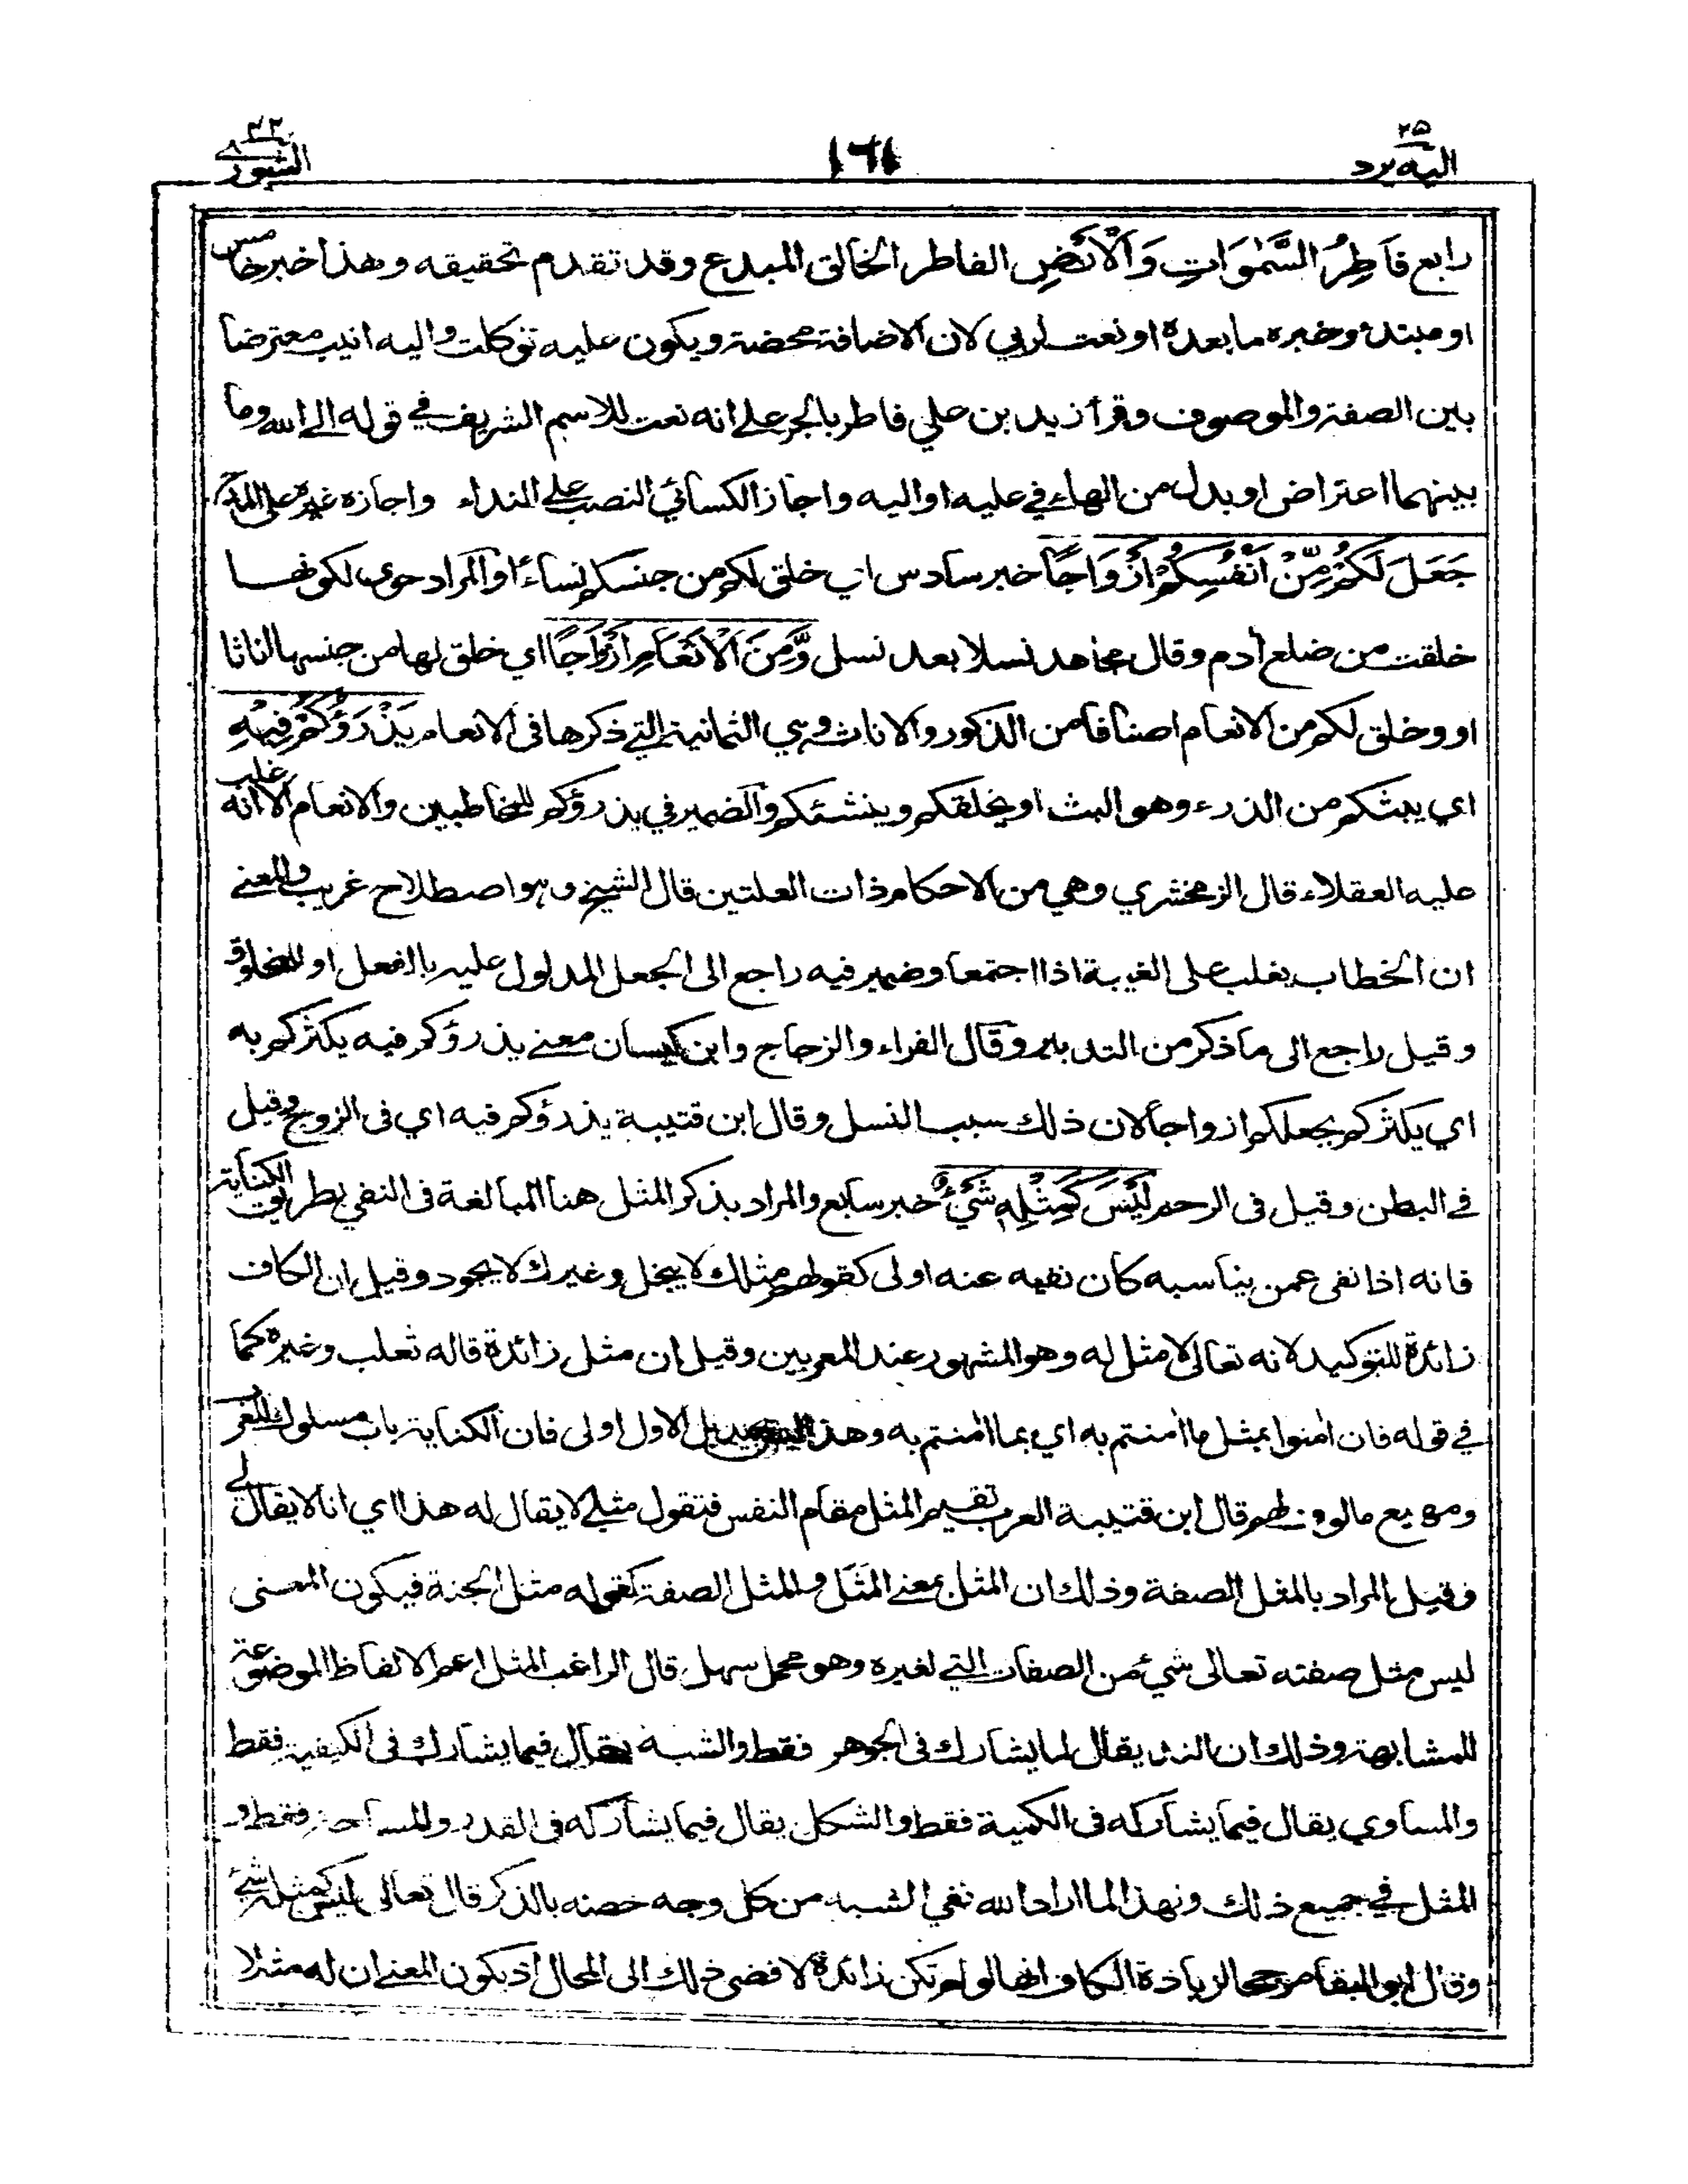 ٢٥
اليه يرد
١٦١
٤٢
الشورى
رابع فَاطِرُ السَّمٰوَاتِ وَالْاَرْضِ الفاطر الخالق المبدع وقد تقدم تحقيقه وهذا خبر خامس
او مبتدأ وخبره ما بعده او نعت لربي لان الاضافة محضة ويكون عليه توكلت واليه انيب معترضا
بين الصفة والموصوف وقرأ زيد بن علي فاطر بالجر على انه نعت للاسم الشريف في قوله الى الله وما
بينهما اعتراض او بدل من الهاء في عليه او اليه واجاز الكسائي النصب على النداء واجازه غيره على المدح
جَعَلَ لَكُمْ مِّنْ اَنْفُسِكُمْ اَزْوَاجًا خبر سادس اي خلق لكم من جنسكم نساء او المراد حوى لكونها
خلقت من ضلع أدم وقال مجاهد نسلا بعد نسل وَّمِنَ الْاَنْعَامِ اَزْوَاجًا اي خلق لها من جنسها اناثا
او وخلق لكم من الانعام اصنافا من الذكور والاناث وهي الثمانية التي ذكرها فى الانعام يَذْرَؤُكُمْ فِيْهِ
اي يبثكم من الذرء وهو البث او يخلقكم وينشئكم والضمير في يذرؤكم للمخاطبين والانعام الا انه غلب
عليه العقلاء قال الزمخشري وهي من الاحكام ذات العلتين قال الشيخ وهو اصطلاح غريب والمعنى
ان الخطاب يغلب على الغيبة اذا اجتمعا وضمير فيه راجع الى الجعل المدلول عليه بالفعل او للمخلوق
وقيل راجع الى ما ذكر من التدبير وقال الفراء والزجاج وابن كيسان معنى يذرؤكم فيه يكثركم به
اي يكثركم يجعلكم ازواجا لان ذلك سبب النسل وقال ابن قتيبة يذرؤكم فيه اي فى الزوج وقيل
في البطن وقيل فى الرحم لَيْسَ كَمِثْلِهٖ شَيْءٌ خبر سابع والمراد بذكر المثل هنا المبالغة فى النفي بطريق الكناية
فانه اذا نفى عمن يناسبه كان نفيه عنه اولى كقولهم مثلك لا يبخل وغيرك لا يجود وقيل ان الكاف
زائدة للتوكيد لانه تعالى لا مثل له وهو المشهور عند المعربين وقيل ان مثل زائدة قاله ثعلب وغيره كما
في قوله فان اٰمنوا بمثل ما اٰمنتم به اي بما اٰمنتم به وهذا ليس بجيد بل الاول اولى فان الكناية باب مسلوك للعرب
ومهيع مالوف لهم قال ابن قتيبة العرب تقيم المثل مقام النفس فتقول مثلي لا يقال له هذا اي انا لا يقال لي
وقيل المراد بالمثل الصفة وذلك ان المثل بمعنى المَثَل والمثل الصفة كقوله مثل الجنة فيكون المعنى
ليس مثل صفته تعالى شيء من الصفات التي لغيره وهو محمل سهل قال الراغب المثل اعم الالفاظ الموضوعة
للمشابهة وذلك ان الند يقال لما يشارك فى الجوهر فقط والشبه يقال فيما يشارك فى الكيفية فقط
والمساوي يقال فيما يشاركه فى الكمية فقط والشكل يقال فيما يشاركه فى القدر والمساحة فقط و
المثل في جميع ذلك ولهذا لما اراد الله نفي الشبه من كل وجه خصه بالذكر قال تعالى ليس كمثله شيء
وقال ابو البقاء مرجحا لزيادة الكاف انها لو لم تكن زائدة لافضى ذلك الى المحال اذ يكون المعنى ان له مثلا